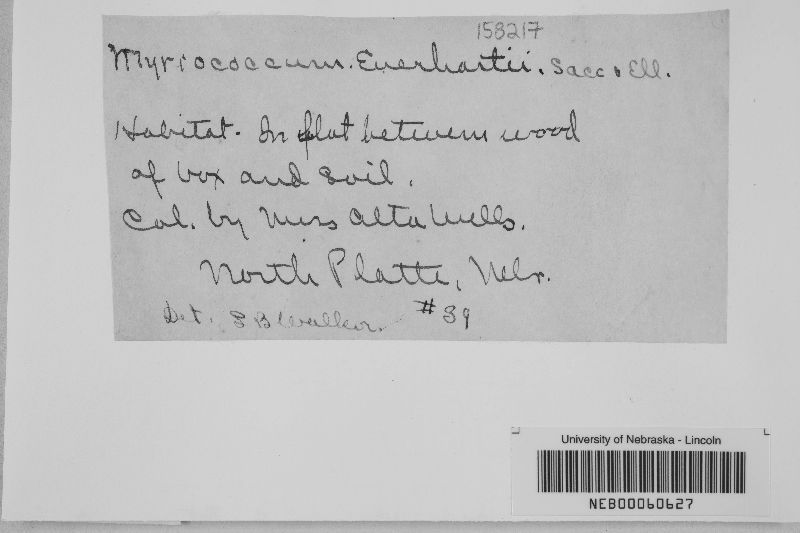 158217
Myriococcum. Everhartii. Sacc & Ell.
Habitat. In flat between wood
of box and soil.
Col. by Miss Alta Wells.
North Platte, Nebr.
Det. S B Walker. #39
University of Nebraska - Lincoln
NEB00060627